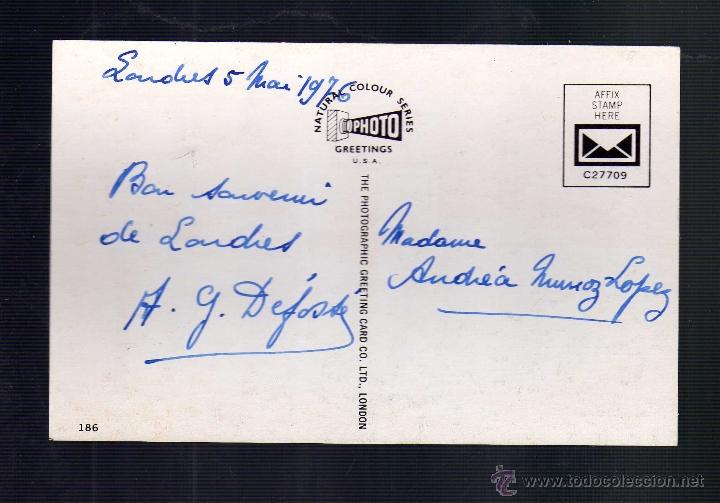 Londres 5 Mai 1976
NATURAL COLOUR SERIES
PHOTO
GREETINGS
U.S.A.
AFFIX
STAMP
HERE
C27709
Bon souvenir
de Londres
A. G. Défossé
THE PHOTOGRAPHIC GREETING CARD CO. LTD., LONDON
Madame
Andréa Munoz-Lopez
186
www.todocoleccion.net